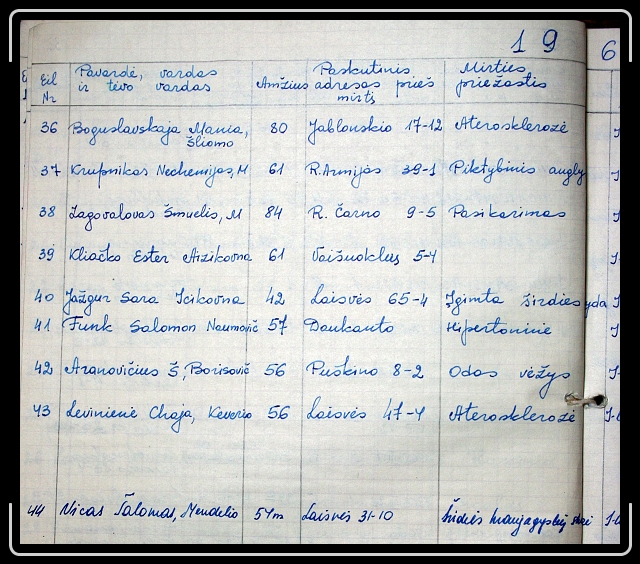 19 6
Eil Nr Pavardė, vardas ir tėvo vardas Amžius Paskutinis adresas prieš mirtį Mirties priežastis
36 Boguslavskaja Mania, Šliomo 80 Jablonskio 17-12 Aterosklerozė
37 Krupnikas Nechemijas, M 61 R. Armijos 39-1 Piktybinis auglys
38 Zagovalovas Šmuelis, M 84 R. Čarno 9-5 Pasikarimas
39 Kliačko Ester Aizikovna 61 Vaišuoklus 5-4
40 Jažgur Sara Icikovna 42 Laisvės 65-4 Įgimta širdies yda
41 Funk Salomon Naumovič 57 Daukanto Hipertoninė
42 Aranovičius Š, Borisovič 56 Puškino 8-2 Odos vėžys
43 Levinienė Chaja, Keverio 56 Laisvės 47-4 Aterosklerozė
44 Nicas Šalomas, Mendelio 54m Laisvės 31-10 Širdies kraujagyslių